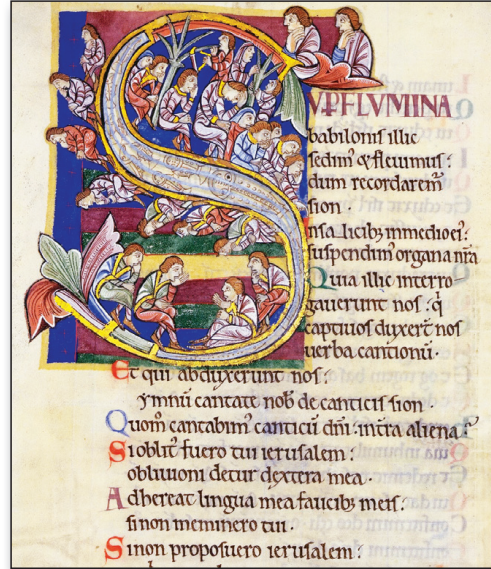 SVꝐ FLVMINA
babilonis illic
sedim᷒ & fleuimus:
dum recordarem᷒
sion·
Insalicib; inmedio ei᷒:
suspendim᷒ organa nr̄a
Quia illic interro-
gauerunt nos: q̇
captiuos duxer̄t nos
uerba cantionū·
Et qui abduxerunt nos:
ymnū cantate nob̄ de canticis sion·
Quom̄ cantabim᷒ canticū dn̄i: intra aliena?
Si oblit᷒ fuero tui ierusalem:
obliuioni detur dextera mea·
Adhereat lingua mea faucib; meis:
si non meminero tui·
Si non proposuero ierusalem: